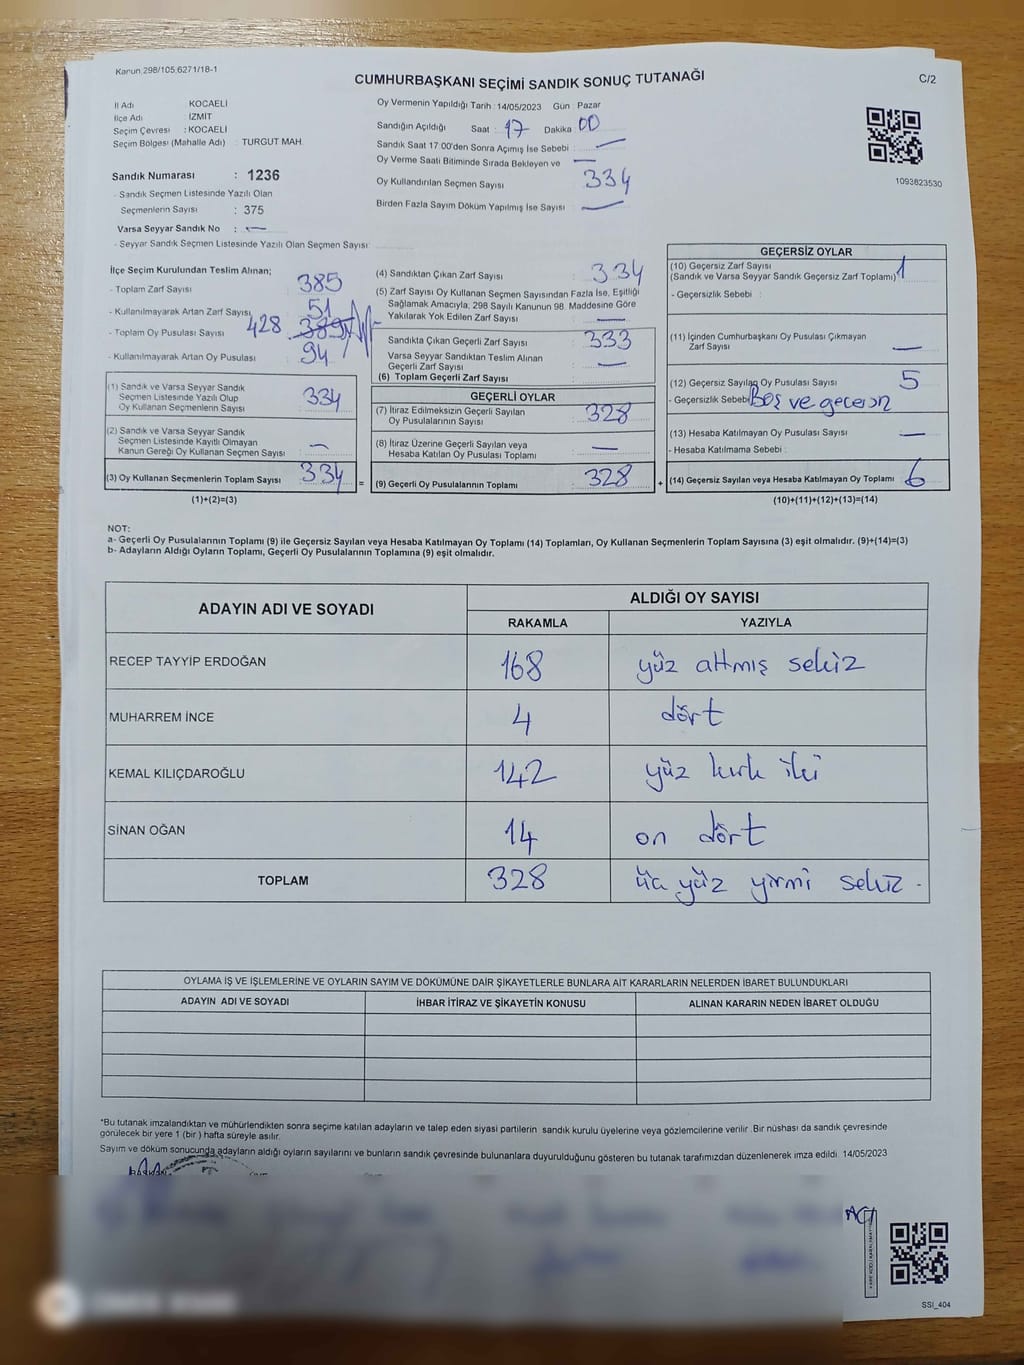 Kanun 298/105.6271/18-1
CUMHURBAŞKANI SEÇİMİ SANDIK SONUÇ TUTANAĞI
C/2
İl Adı KOCAELİ
İlçe Adı : İZMİT
Seçim Çevresi : KOCAELİ
Seçim Bölgesi (Mahalle Adı) : TURGUT MAH.
Sandık Numarası : 1236
- Sandık Seçmen Listesinde Yazılı Olan
Seçmenlerin Sayısı : 375
Varsa Seyyar Sandık No : —
- Seyyar Sandık Seçmen Listesinde Yazılı Olan Seçmen Sayısı:
Oy Vermenin Yapıldığı Tarih : 14/05/2023 Gün : Pazar
Sandığın Açıldığı Saat : 17 Dakika 00
Sandık Saat 17.00'den Sonra Açımış İse Sebebi : —
Oy Verme Saati Bitiminde Sırada Bekleyen ve —
Oy Kullandırılan Seçmen Sayısı : 334
Birden Fazla Sayım Döküm Yapılmış İse Sayısı : —
1093823530
İlçe Seçim Kurulundan Teslim Alınan;
- Toplam Zarf Sayısı : 385
- Kullanılmayarak Artan Zarf Sayısı 51
- Toplam Oy Pusulası Sayısı 428 389
- Kullanılmayarak Artan Oy Pusulası : 94
(1) Sandık ve Varsa Seyyar Sandık
Seçmen Listesinde Yazılı Olup
Oy Kullanan Seçmenlerin Sayısı : 334
(2) Sandık ve Varsa Seyyar Sandık
Seçmen Listesinde Kayıtlı Olmayan
Kanun Gereği Oy Kullanan Seçmen Sayısı : —
(3) Oy Kullanan Seçmenlerin Toplam Sayısı : 334 =
(1)+(2)=(3)
(4) Sandıktan Çıkan Zarf Sayısı : 334
(5) Zarf Sayısı Oy Kullanan Seçmen Sayısından Fazla İse, Eşitliği
Sağlamak Amacıyla, 298 Sayılı Kanunun 98. Maddesine Göre
Yakılarak Yok Edilen Zarf Sayısı : —
Sandıkta Çıkan Geçerli Zarf Sayısı : 333
Varsa Seyyar Sandıktan Teslim Alınan
Geçerli Zarf Sayısı : —
(6) Toplam Geçerli Zarf Sayısı :
GEÇERLİ OYLAR
(7) İtiraz Edilmeksizin Geçerli Sayılan
Oy Pusulalarının Sayısı : 328
(8) İtiraz Üzerine Geçerli Sayılan veya
Hesaba Katılan Oy Pusulası Toplamı : —
(9) Geçerli Oy Pusulalarının Toplamı : 328 +
GEÇERSİZ OYLAR
(10) Geçersiz Zarf Sayısı
(Sandık ve Varsa Seyyar Sandık Geçersiz Zarf Toplamı) : 1
- Geçersizlik Sebebi :
(11) İçinden Cumhurbaşkanı Oy Pusulası Çıkmayan
Zarf Sayısı : —
(12) Geçersiz Sayılan Oy Pusulası Sayısı : 5
- Geçersizlik Sebebi Boş ve
(13) Hesaba Katılmayan Oy Pusulası Sayısı : —
- Hesaba Katılmama Sebebi :
(14) Geçersiz Sayılan veya Hesaba Katılmayan Oy Toplamı : 6
(10)+(11)+(12)+(13)=(14)
NOT:
a- Geçerli Oy Pusulalarının Toplamı (9) ile Geçersiz Sayılan veya Hesaba Katılmayan Oy Toplamı (14) Toplamları, Oy Kullanan Seçmenlerin Toplam Sayısına (3) eşit olmalıdır. (9)+(14)=(3)
b- Adayların Aldığı Oyların Toplamı, Geçerli Oy Pusulalarının Toplamına (9) eşit olmalıdır.
ADAYIN ADI VE SOYADI ALDIĞI OY SAYISI
RAKAMLA YAZIYLA
RECEP TAYYİP ERDOĞAN 168 yüz altmış sekiz
MUHARREM İNCE 4 dört
KEMAL KILIÇDAROĞLU 142 yüz kırk iki
SİNAN OĞAN 14 on dört
TOPLAM 328 üç yüz yirmi sekiz
OYLAMA İŞ VE İŞLEMLERİNE VE OYLARIN SAYIM VE DÖKÜMÜNE DAİR ŞİKAYETLERLE BUNLARA AİT KARARLARIN NELERDEN İBARET BULUNDUKLARI
ADAYIN ADI VE SOYADI İHBAR İTİRAZ VE ŞİKAYETİN KONUSU ALINAN KARARIN NEDEN İBARET OLDUĞU
*Bu tutanak imzalandıktan ve mühürlendikten sonra seçime katılan adayların ve talep eden siyasi partilerin sandık kurulu üyelerine veya gözlemcilerine verilir. Bir nüshası da sandık çevresinde
görülecek bir yere 1 (bir ) hafta süreyle asılır.
Sayım ve döküm sonucunda adayların aldığı oyların sayılarını ve bunların sandık çevresinde bulunanlara duyurulduğunu gösteren bu tutanak tarafımızdan düzenlenerek imza edildi. 14/05/2023
BAŞKAN
SSI_404